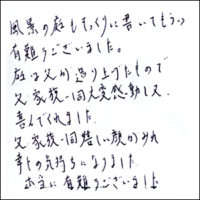 風景の庭もそっくりに書いてもらい
有難うございました。
庭は父が造り上げたもので
父家族一同大変感動して
喜んでくれました
父家族一同嬉しい顔がみれ
幸せの気持ちになりました
本当に有難うございました